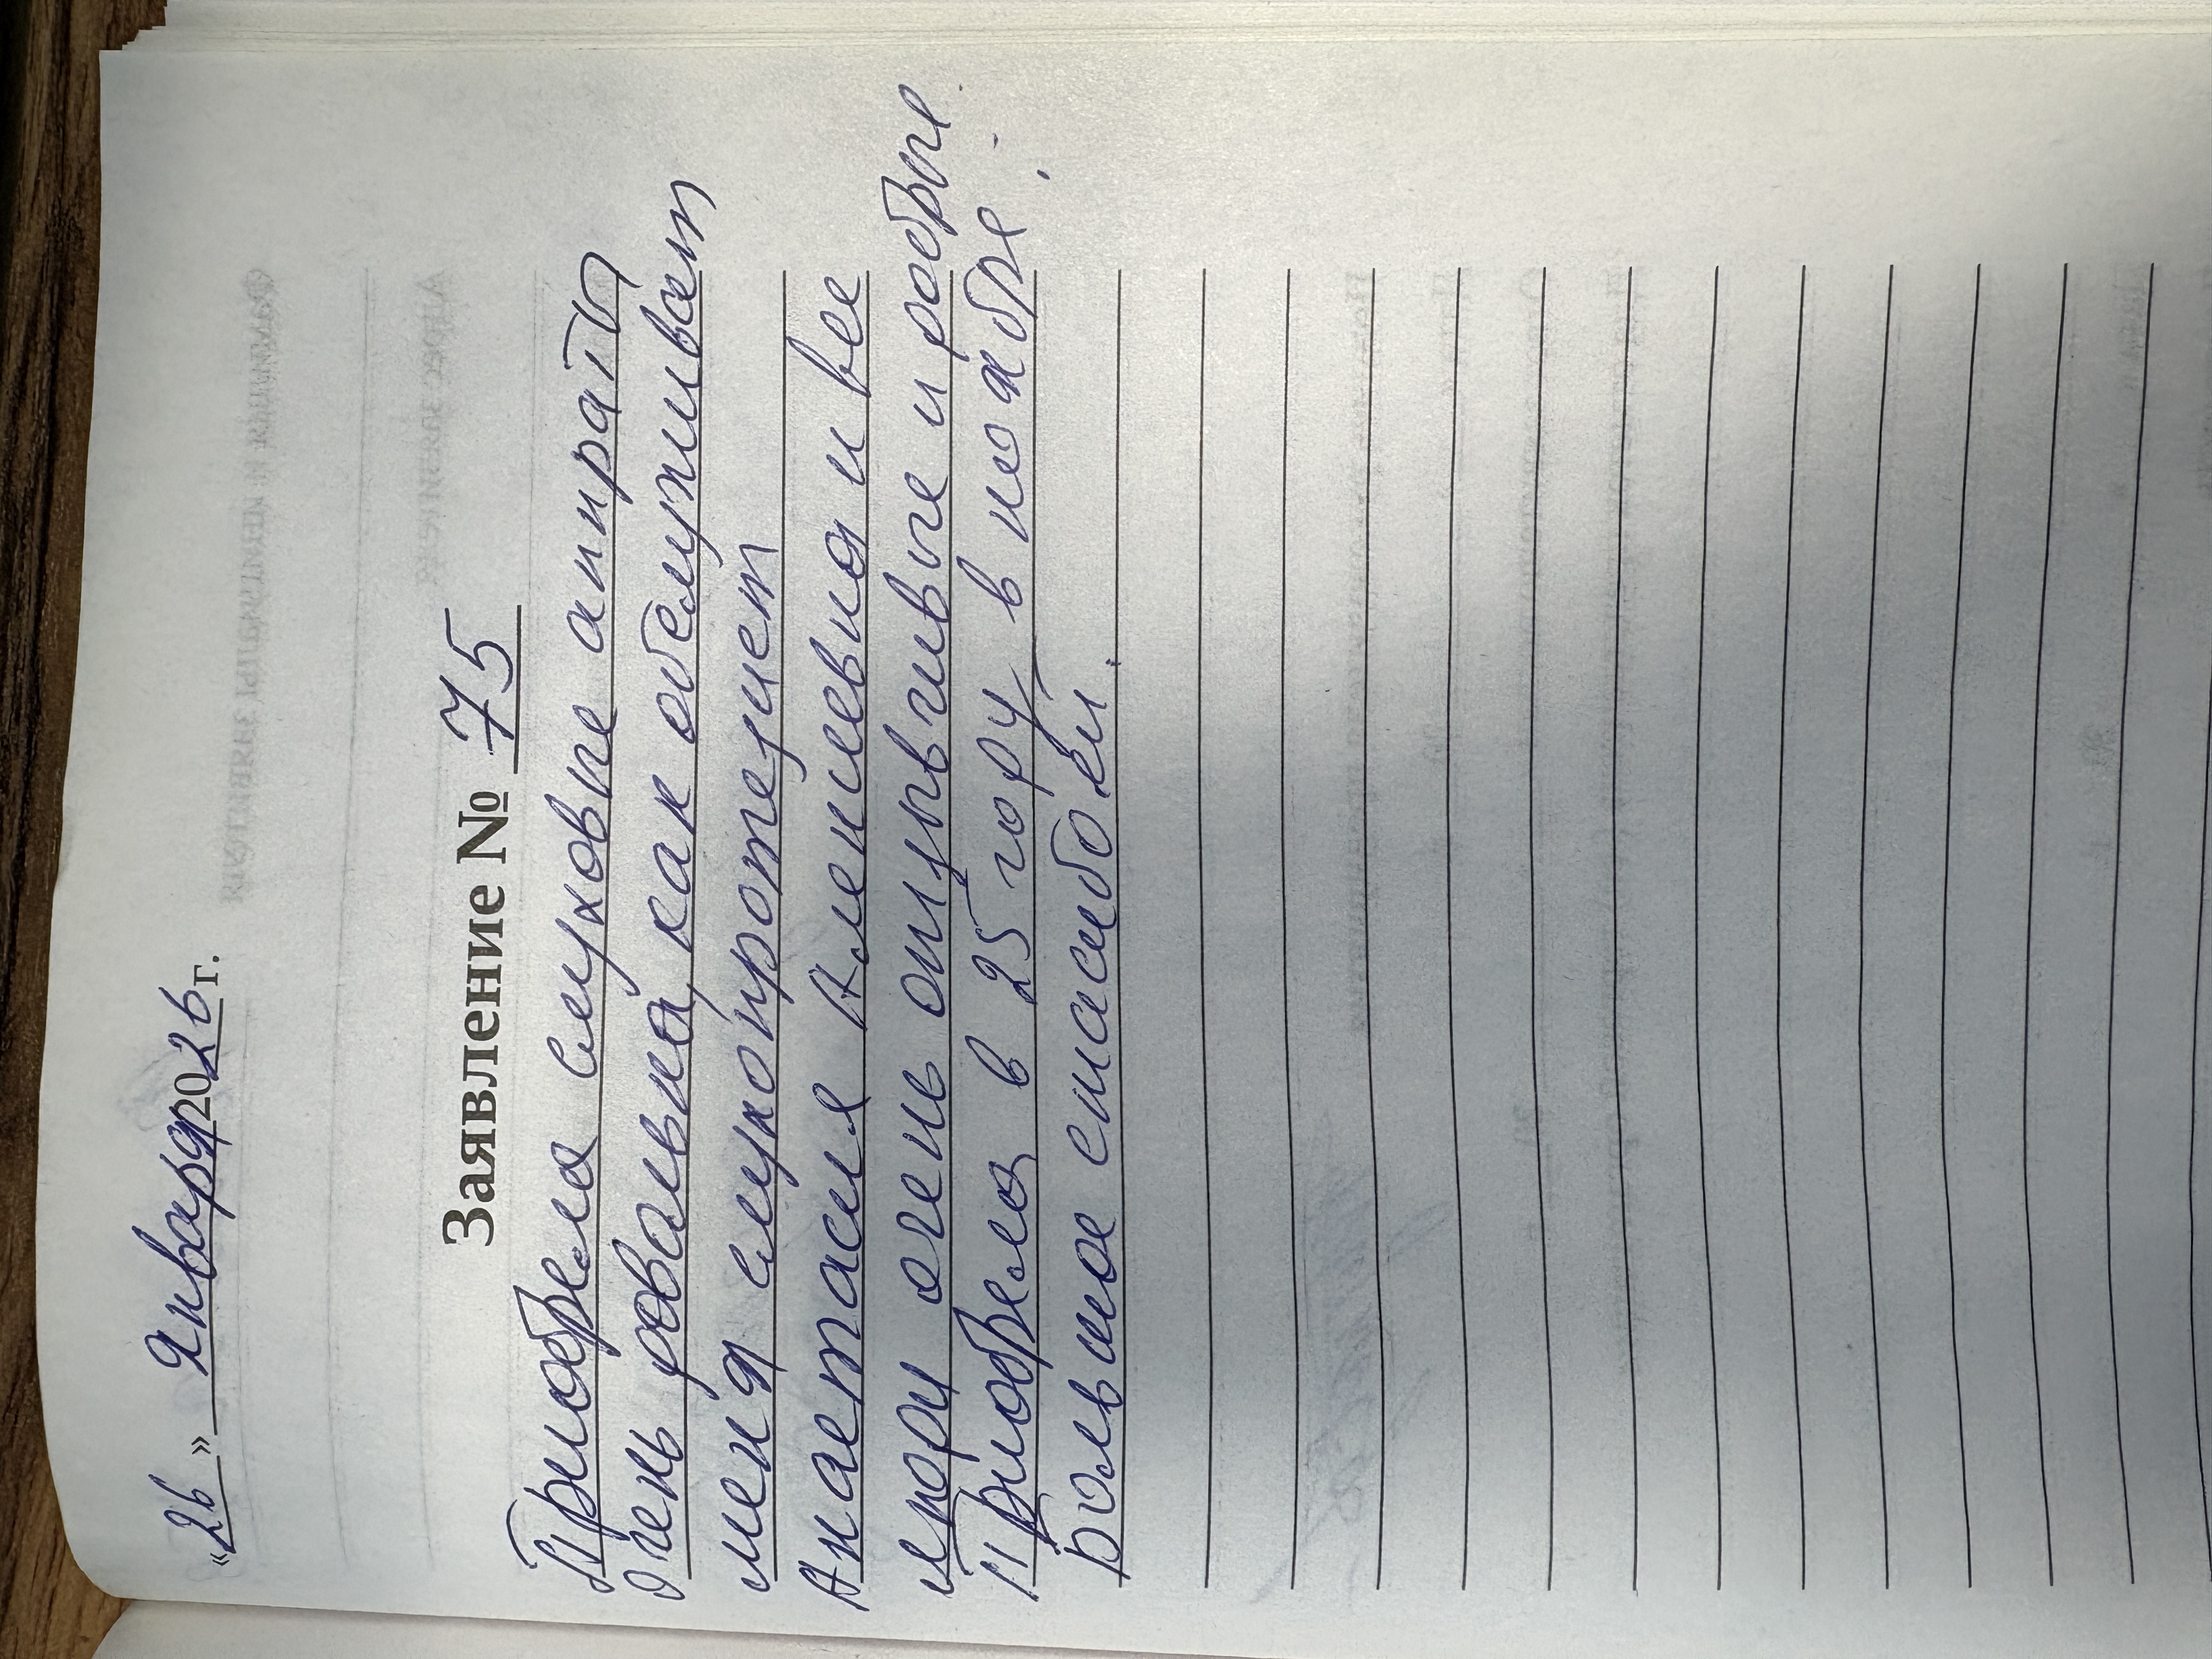 «26» Января 2026 г.
Заявление № 75
Приобрела слуховые аппраты
Очень довольна, как обслуживает
меня слухопротезист
Анастасия Алексеевна и все
люди очень отзывчивые и добрые.
Приобрела в 25 году в ноябре.
Большое спасибо ей.